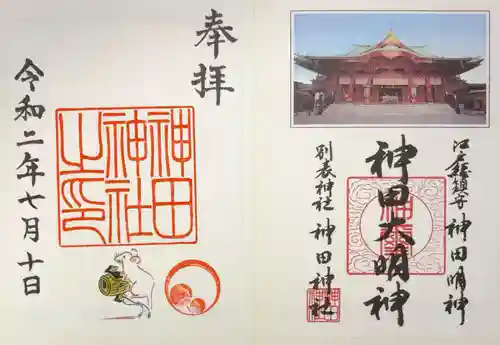 奉拝
神田
神社
之印
令和二年七月十日
江戸総鎮守 神田明神
神田大明神
別表神社 神田神社